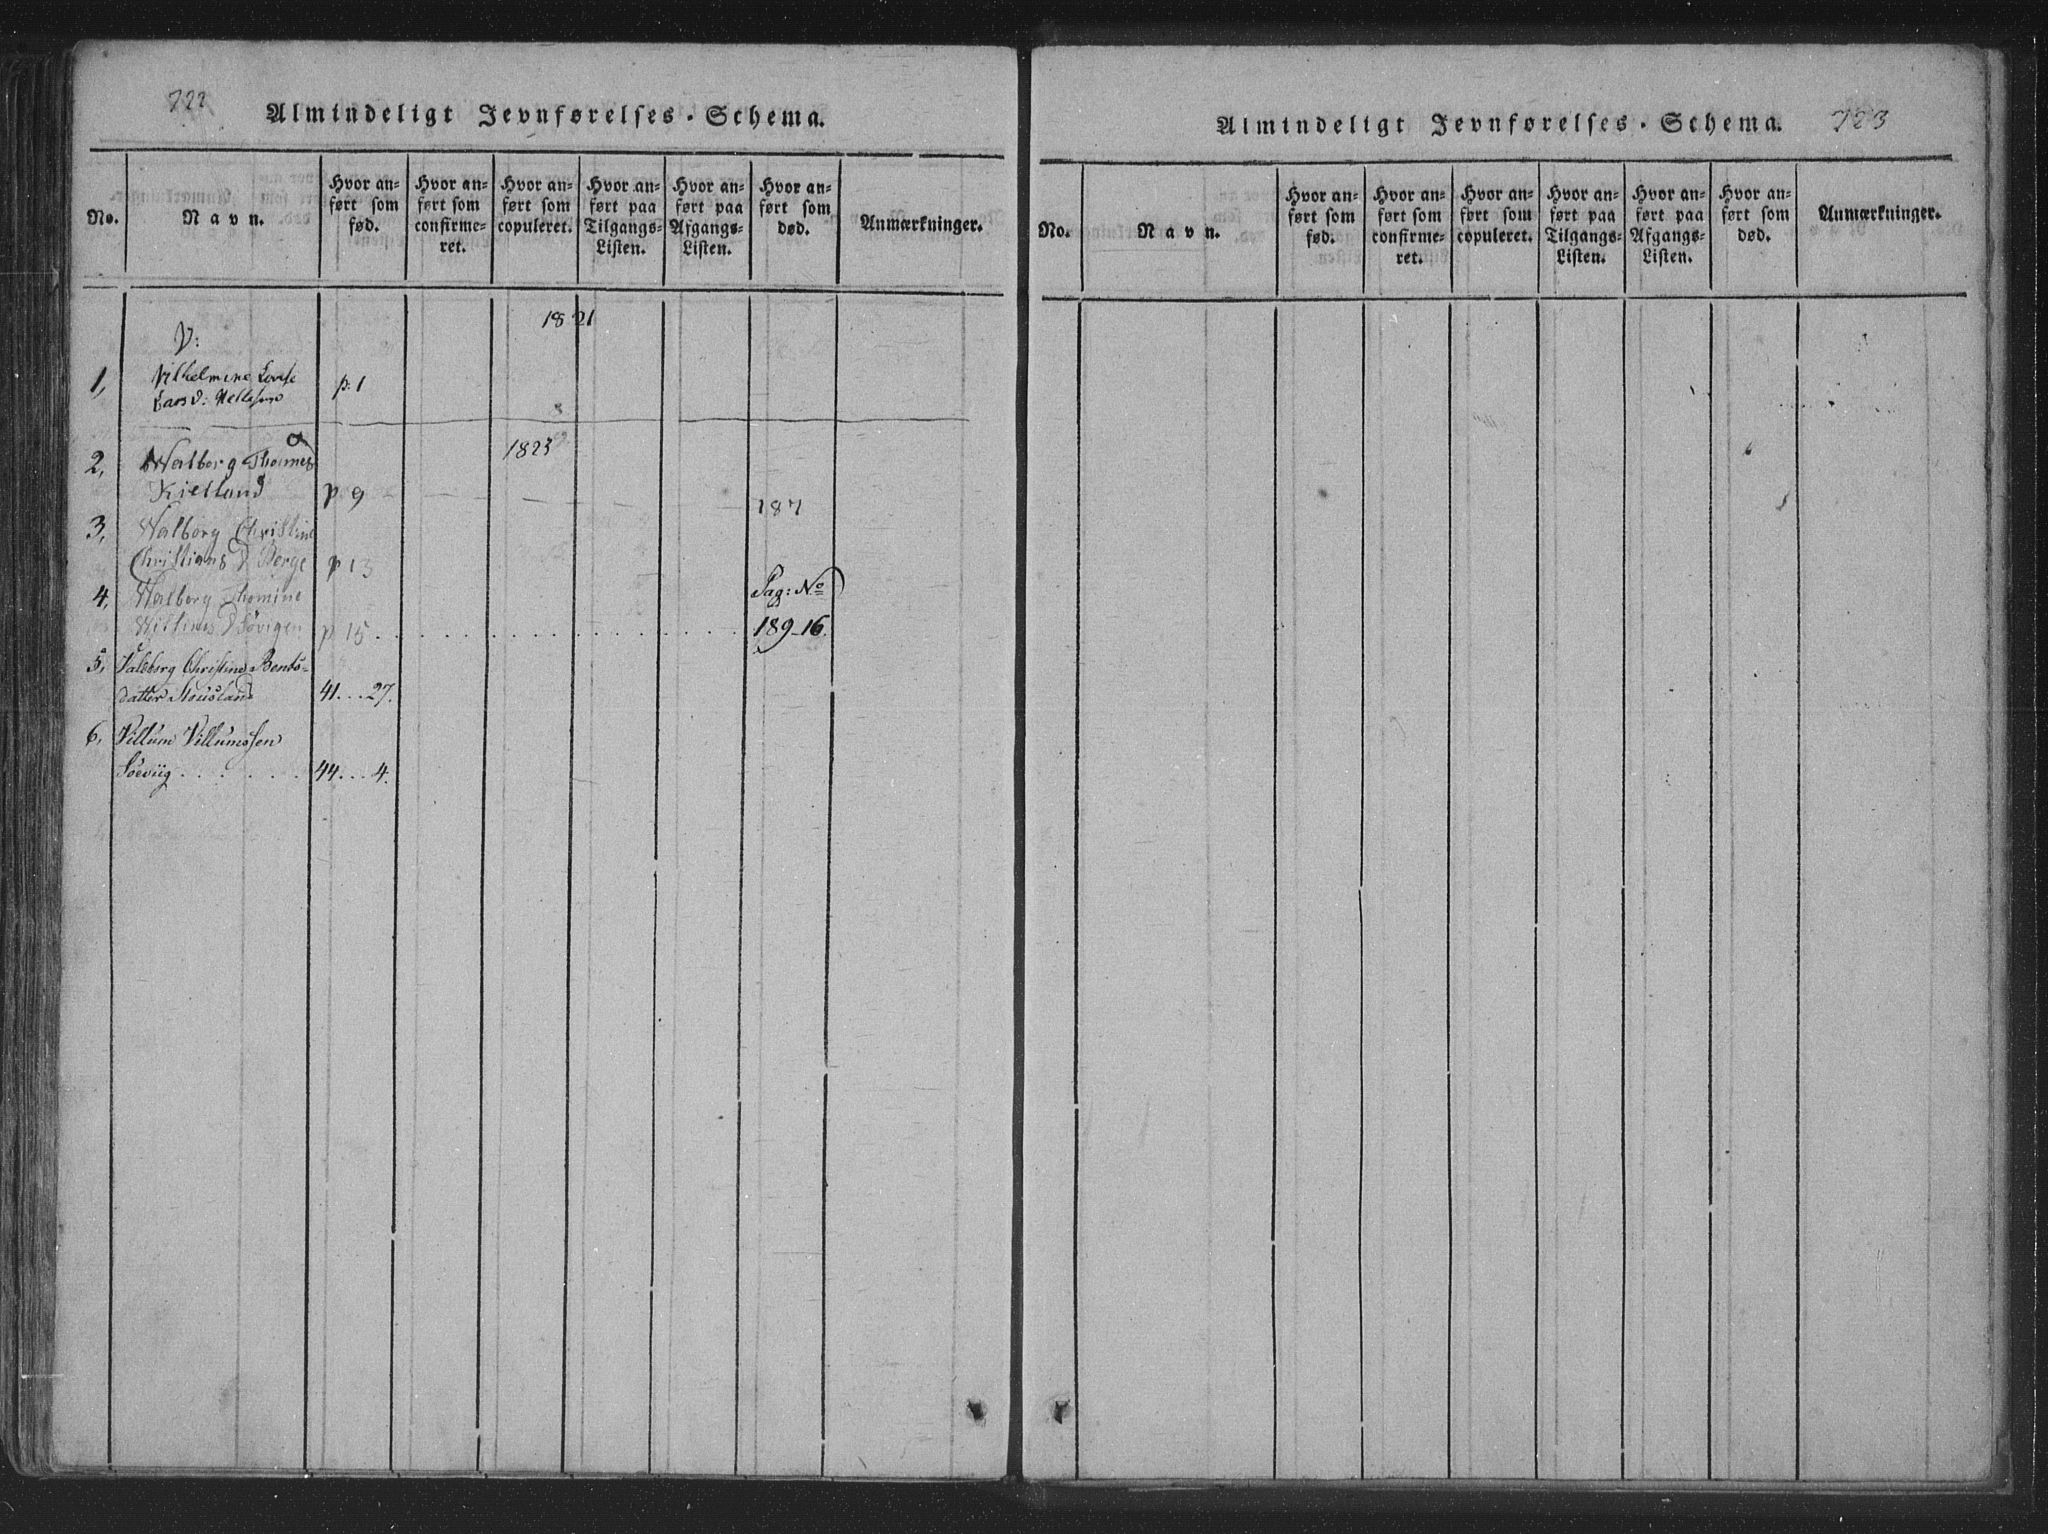 722
Almindeligt Jevnførelses-Schema.
No.
Navn.
Hvor anført som fød.
Hvor anført som confirmeret.
Hvor anført som copuleret.
Hvor anført paa Tilgangs-Listen.
Hvor anført paa Afgangs-Listen.
Hvor anført som død.
Anmærkninger.
V:
1821
1, Vilhelmine Lovise
Lars D: p. 1
1823
2, Walborg Thomes
Kielland p 9
187
3, Walborg Christine
Christians D Berge p 13
4, Walborg Thomine Pag: No
Willums D Sövigen p 15 189-16.
5, Valborg Christine Bents-
datter 41...27.
6, Villum Villumssen
Söeviig 44...4.
723
Almindeligt Jevnførelses-Schema.
No.
Navn.
Hvor anført som fød.
Hvor anført som confirmeret.
Hvor anført som copuleret.
Hvor anført paa Tilgangs-Listen.
Hvor anført paa Afgangs-Listen.
Hvor anført som død.
Anmærkninger.